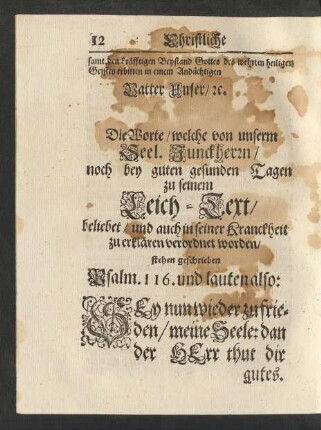 12 Christliche
samt den kräfftigen Beystand Gottes des wehrten heiligen
Geystes erbitten in einem Andächtigen
Vatter Unser/ ꝛc.
Die Worte/ welche von unserm
Seel. Junckherrn/
noch bey guten gesunden Tagen
zu seinem
Leich-Text/
beliebet/ und auch in seiner Kranckheit
zu erklären verordnet worden/
stehen geschrieben
Psalm. 116. und lauten also:
SEy nun wieder zu frie-
den/ meine Seele: dan
der HErr thut dir
gutes.